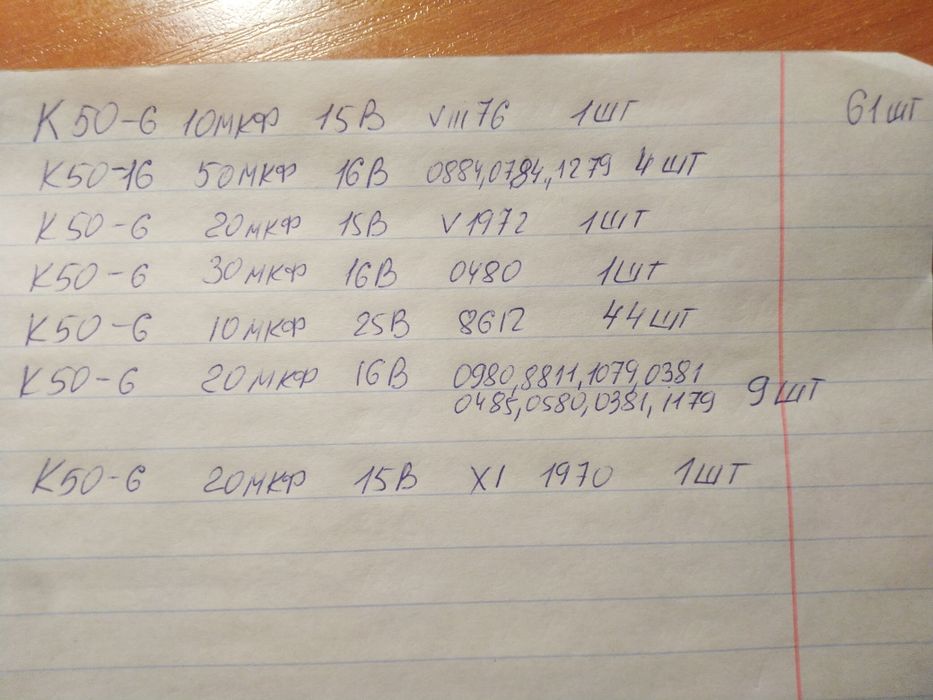 К50-6 10мкФ 15В VIII76 1шт 61шт
К50-16 50мкФ 16В 0884,0784,1279 4шт
К50-6 20мкФ 15В V1972 1шт
К50-6 30мкФ 16В 0480 1шт
К50-6 10мкФ 25В 8612 44шт
К50-6 20мкФ 16В 0980,8811,1079,0381
0485,0580,0381,1179 9шт
К50-6 20мкФ 15В XI 1970 1шт